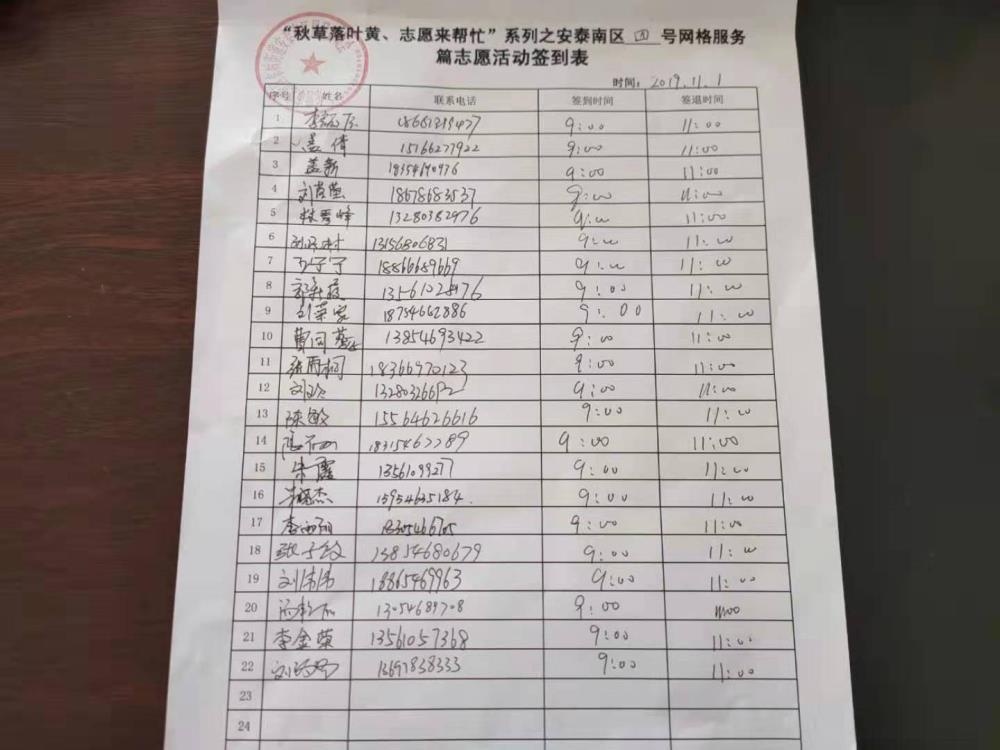 “秋草落叶黄、志愿来帮忙”系列之安泰南区 四 号网格服务
篇志愿活动签到表
时间：2019.11.1
序号 姓名 联系电话 签到时间 签退时间
1 18661319477 9:00 11:00
2 盖倩 15166277922 9:00 11:00
3 盖新 18354690976 9:00 11:00
4 18678683537 9:00 11:00
5 13280382976 9:00 11:00
6 13156806831 9:00 11:00
7 18866689669 9:00 11:00
8 13561028976 9:00 11:00
9 刘荣家 18754662886 9:00 11:00
10 13854693422 9:00 11:00
11 张雨桐 18366970123 9:00 11:00
12 刘玲 9:00 11:00
13 陈敏 15564626616 9:00 11:00
14 18315467789 9:00 11:00
15 朱霞 13561099277 9:00 11:00
16 15954625184 9:00 11:00
17 18305466705 9:00 11:00
18 张子纹 13854680679 9:00 11:00
19 刘伟伟 18865469963 9:00 11:00
20 9:00 11:00
21 李金荣 13561057368 9:00 11:00
22 13697838333 9:00 11:00
23
24